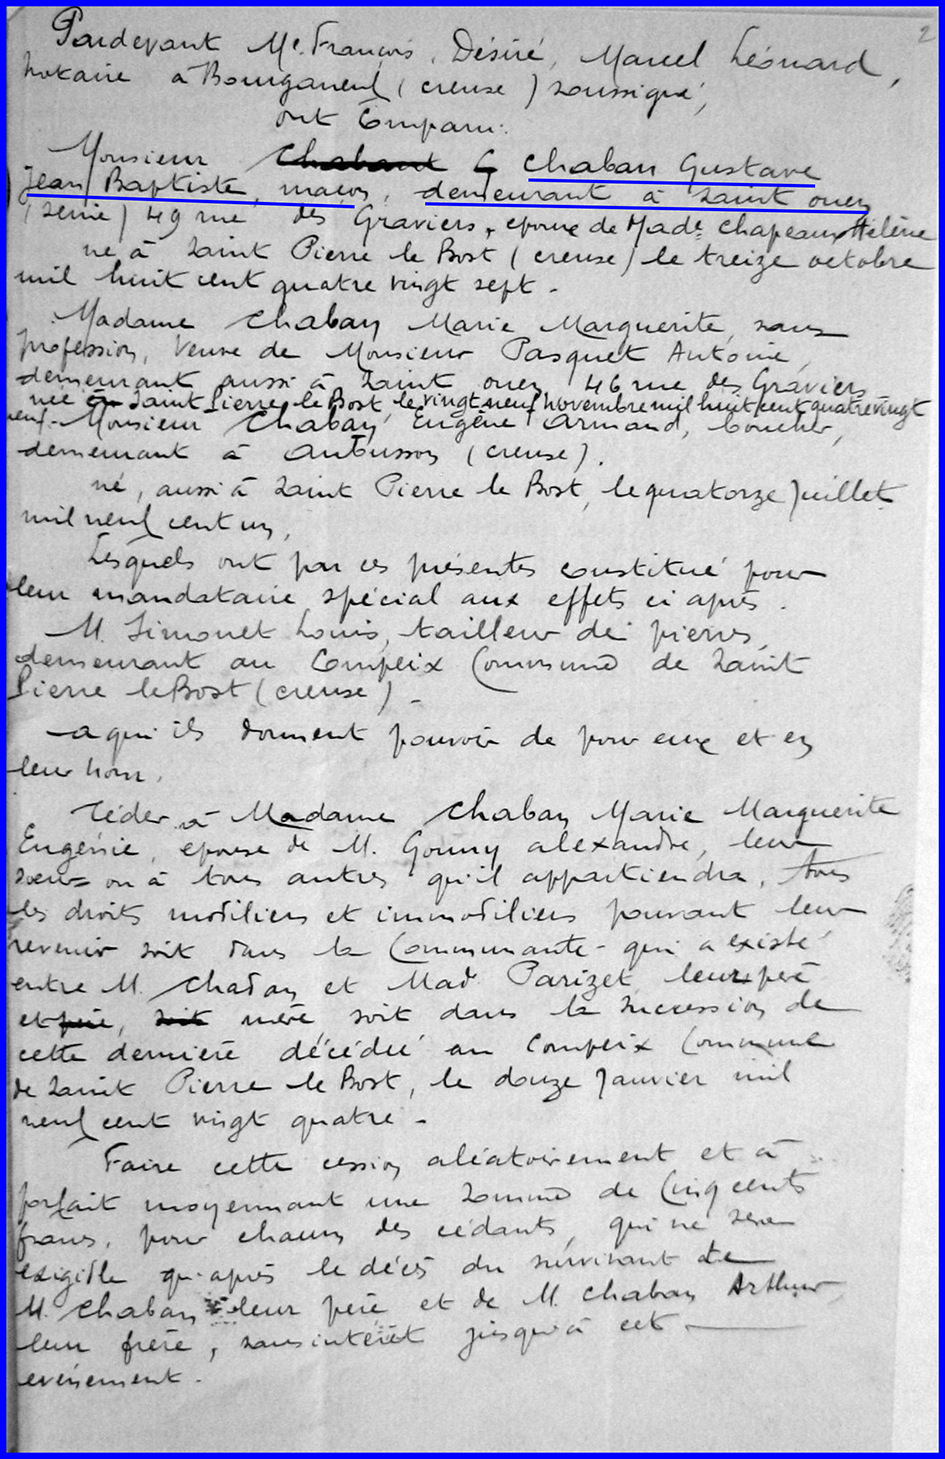 2
Pardevant Me. François, Désiré, Marcel Léonard,
notaire à Bourganeuf (creuse) soussigné,
ont Comparu:
Monsieur Chabant G Chaban Gustave
Jean Baptiste, maçon, demeurant à Saint ouen
(seine) 49 rue des Graviers, epoux de Made Chapeaux Hélène
né à Saint Pierre le Bost (creuse) le treize octobre
mil huit cent quatre vingt sept -
Madame Chaban Marie Marguerite, sans
profession, Veuve de Monsieur Pasquet Antoine,
demeurant aussi à Saint ouen, 46 rue des Graviers
née à Saint Pierre le Bost, le vingt neuf Novembre mil huit cent quatre vingt
neuf - Monsieur Chaban Eugène Armand,
demeurant à Aubusson (creuse).
né, aussi à Saint Pierre le Bost, le quatorze Juillet
mil neuf cent un,
Lesquels ont par ces présentes constitué pour
leur mandataire spécial aux effets ci après.
M. Simonet Louis, tailleur de pierres,
demeurant au Compeix Commune de Saint
Pierre le Bost (creuse) -
-a qui ils donnent pouvoir de pour eux et en
leur nom.
Céder à Madame Chaban Marie Marguerite
Eugénie, epouse de M. Gouny alexandre, leur
soeur ou à tous autres qu'il appartiendra, tous
les droits mobiliers et immobiliers pouvant leur
revenir soit dans la Communauté - qui a existé
entre M. Chaban et Mad Parizet, leurs père
et père, soit mère, soit dans la succession de
cette dernière décédée au Compeix Commune
de Saint Pierre le Bost, le douze Janvier mil
neuf cent vingt quatre -
Faire cette cession aléatoirement et à
forfait moyennant une somme de Cinq cents
francs, pour chacun des cédants, qui ne sera
exigible qu'après le décès du survivant de
M. Chaban leur père et de M. Chaban Arthur,
leur frère, sans intérêt jusqu'à cet
evénement.